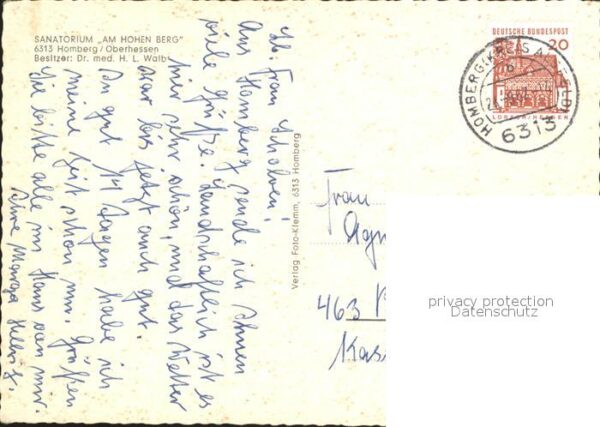 SANATORIUM „AM HOHEN BERG"
6313 Homberg / Oberhessen
Besitzer: Dr. med. H. L. Walb
Lb. Frau Scholen!
Aus Homberg sende ich Ihnen
viele Grüße. Landschaftlich ist es
hier sehr schön, und das Wetter
war bis jetzt auch gut.
In gut 14 Tagen habe ich
meine Zeit schon um. Grüßen
Sie bitte alle im Haus von mir.
Ihre Marga
Verlag Foto-Klemm, 6313 Homberg
DEUTSCHE BUNDESPOST
20
LORSCH/HESSEN
HOMBERG (KREIS ALSFELD)
6313
Frau
Agn
463
Kass
privacy protection
Datenschutz